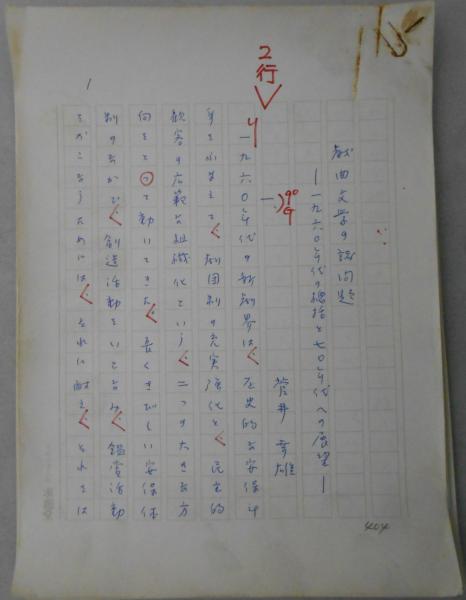 戯曲文学の諸問題
―一九六〇年代の総括と七〇年代への展望―
菅井幸雄
一
一九六〇年代の新劇界は、歴史的な安保斗
争をふまえて、劇団制の充実強化と、民主的
観客の広範な組織化という、二つの大きな方
向をとって動いてきた。長くきびしい安保体
制のなかで、創造活動をいとなみ、鑑賞活動
をおこなうためには、それに耐え、それをは
2行
9ポ
1
404